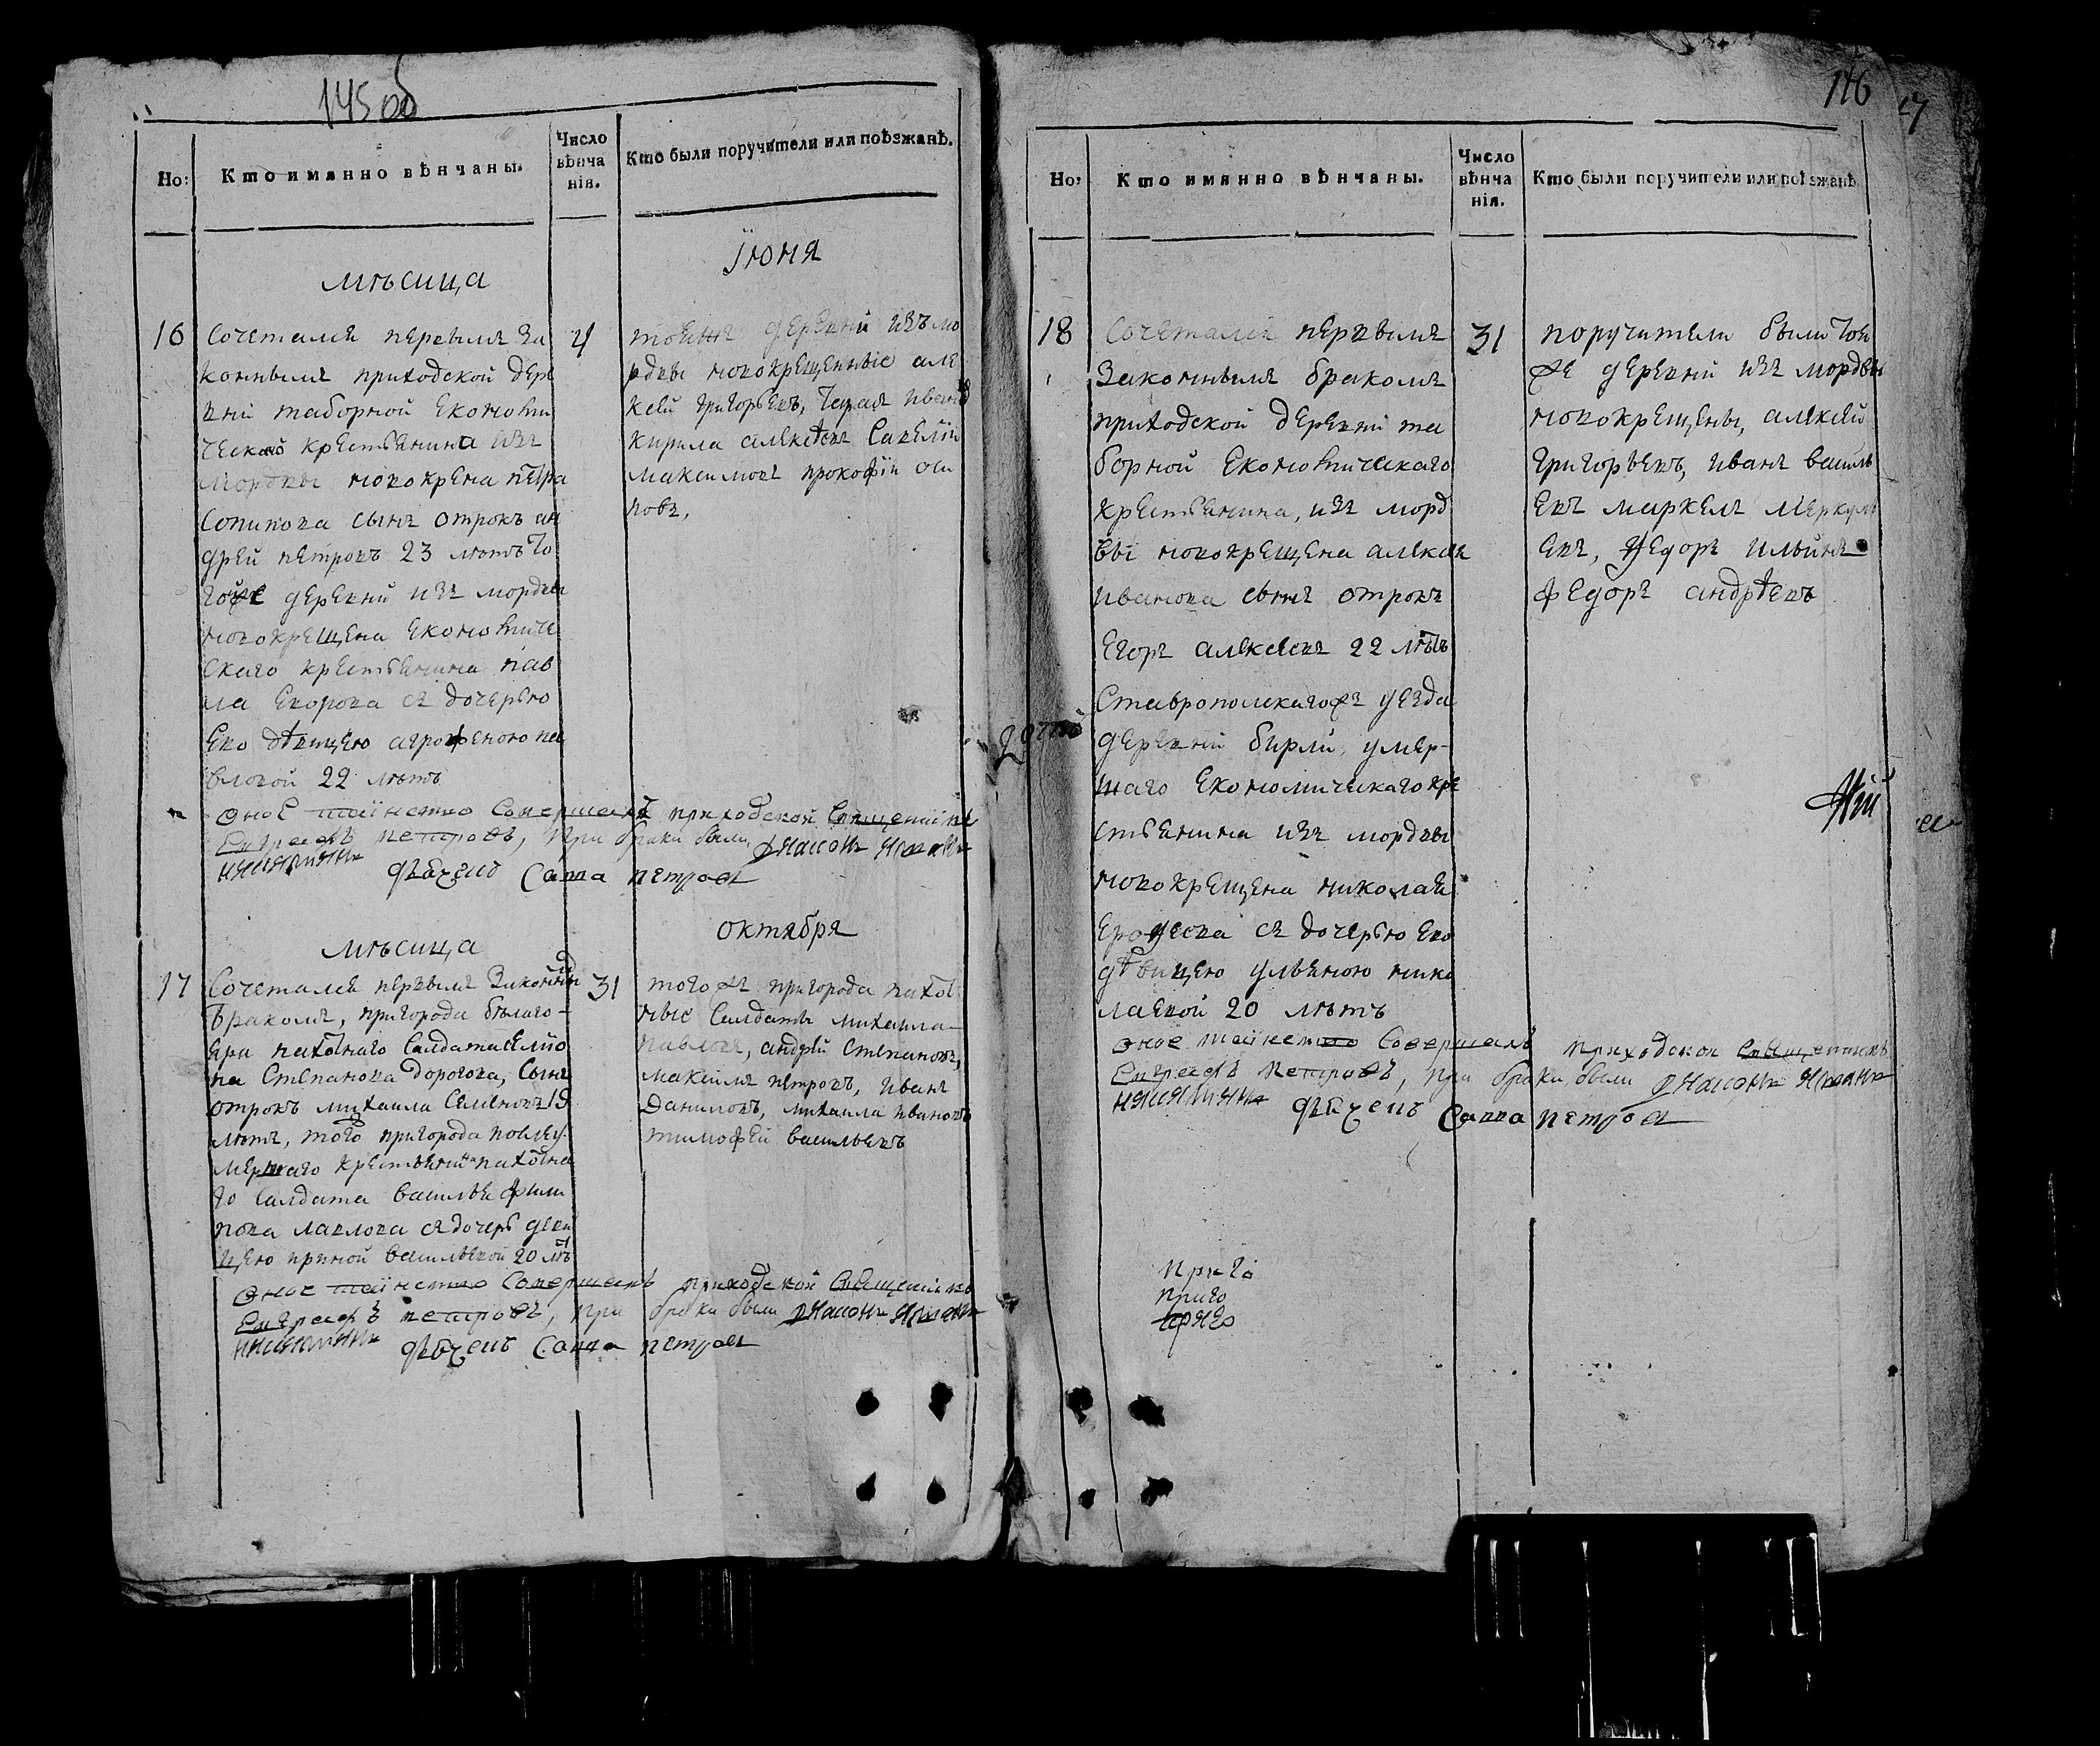 145 об
Но:
Кто имянно вѣнчаны.
Число
вѣнча
нія.
Кто были поручители или поѣзжанѣ.
мѣсица
Іюня
16
Сочетался первымъ за
коннымъ приходской дере
вни таборной Економи
ческаго крестьянина изъ
мордвы новокрена петра
сопикова сынъ отрокъ ан
дрей петровъ 23 лѣтъ то
йже деревни изъ мордвы
новокрещена економиче
скаго крестьянина пав
ла Екорова съ дочерью
Ево дѣвицею агрофеною па
вловой 22 лѣтъ
тояже деревни изъ мо
рдвы новокрещенные але
ксей григорьевъ,
кирила алексѣевъ Савелий
максимовъ прокофїи оси
повъ,
оное таинство Совершалъ приходской Священникъ
Евграфъ петровъ, при браки были
Савва петровъ
мѣсица
октября
17
Сочетался первымъ законны
бракомъ, пригорода бѣлаго-
яра пахотнаго Салдата
на Степанова дорогова, сынъ
отрокъ михаила Семеновъ 19
лѣтъ, того пригорода послѣ у
мершаго крестьянина пахотна
го Салдата василья фили
пова павлова съ дочерь деви
цею ириной васильевой 20 лѣ
31
того же пригорода пахот
ные Салдаты михаила
павловъ, андрей степановъ,
максимъ петровъ, иванъ
Даниловъ, михаила ивановъ
тимофей васильевъ
оное таинство Совершалъ приходской Священникъ
Евграфъ петровъ, при браки были
Савва петровъ
146
Но:
Кто имянно вѣнчаны.
Число
вѣнча
нія.
Кто были поручители или поѣзжанѣ
18
Сочетался первымъ
законнымъ бракомъ
приходской деревни та
борной Економическаго
крестьянина, изъ морд
вы новокрещена алексея
иванова сынъ отрокъ
Егоръ алексеевъ 22 лѣтъ
Ставрополскагожъ уезда
деревни бирли, умер-
шаго Економическаго кре
стьянина изъ мордвы
новокрещена николая
Ерофеева съ дочерью ево
дѣвицею ульяною нико
лаевой 20 лѣтъ
31
поручители были той
же деревни изъ мордвы
новокрещены, алексей
григорьевъ, иванъ василь
евъ маркелъ меркуль
евъ, федоръ ильинъ
федоръ андрѣевъ
оное таинство Совершалъ приходской Священникъ
Евграфъ петровъ, при браки были
Савва петровъ